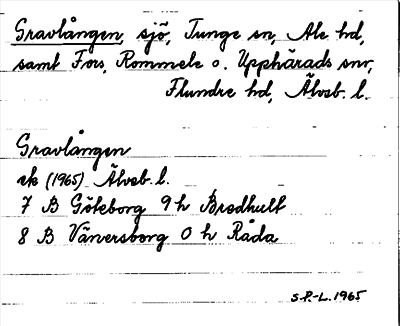 Gravlången, sjö, Tunge sn, Ale hd,
samt Fors, Rommele o. Upphärads snr,
Flundre hd, Älvsb. l.
Gravlången
ek (1965) Älvsb. l.
7 B Göteborg 9 h Bredhult
8 B Vänersborg 0 h Råda
S.P.-L. 1965